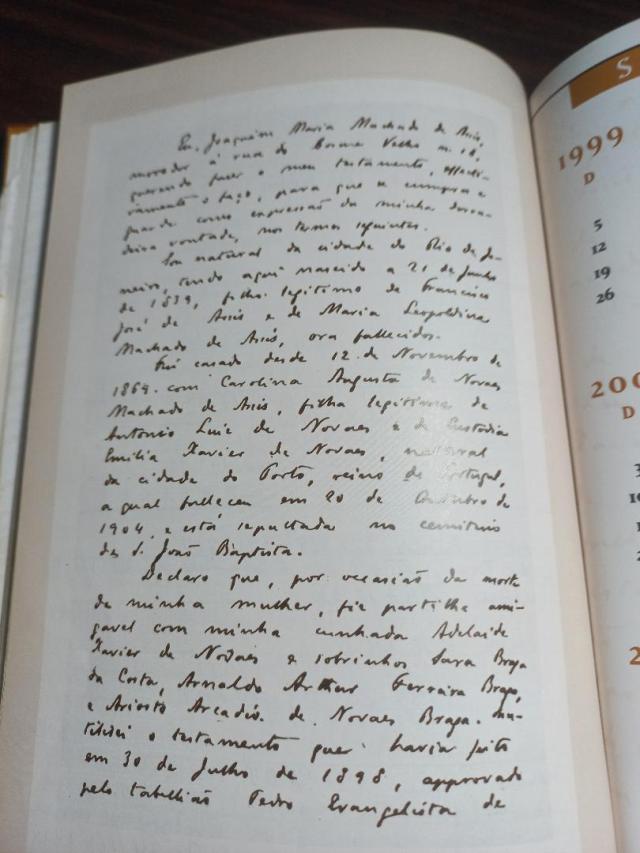 Eu, Joaquim Maria Machado de Assis,
morador á rua do Cosme Velho n. 18,
querendo fazer o meu testamento, effecti-
vamente o faço, para que se cumpra e
guarde como expressão da minha derra-
deira vontade, nos termos seguintes.
Sou natural da cidade do Rio de Ja-
neiro, tendo aqui nascido a 21 de Junho
de 1839, filho legitimo de Francisco
José de Assis e de Maria Leopoldina
Machado de Assis, ora fallecidos.
Fui casado desde 12 de Novembro de
1869 com Carolina Augusta de Novaes
Machado de Assis, filha legitima de
Antonio Luiz de Novaes e de Custodia
Emilia Xavier de Novaes, natural
da cidade do Porto, reino de Portugal,
a qual falleceu em 20 de Outubro de
1904 e está sepultada no cemiterio
de S. João Baptista.
Declaro que, por occasião da morte
de minha mulher, fiz partilha ami-
gavel com minha cunhada Adelaide
Xavier de Novaes e sobrinhos Sara Braga
da Costa, Arnaldo Arthur Ferreira Braga,
e Ariosto Arcadio de Novaes Braga. Inu-
tilisei o testamento que havia feito
em 30 de Julho de 1898, approvado
pelo tabellião Pedro Evangelista de
S
1999
D
5
12
19
26
200
D
3
10
2